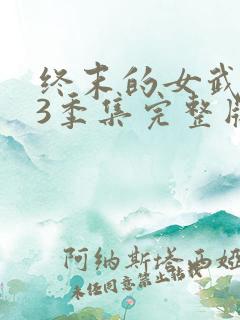 终末的女武
3季集完整版
阿纳斯塔西娅
未经同意禁止转载